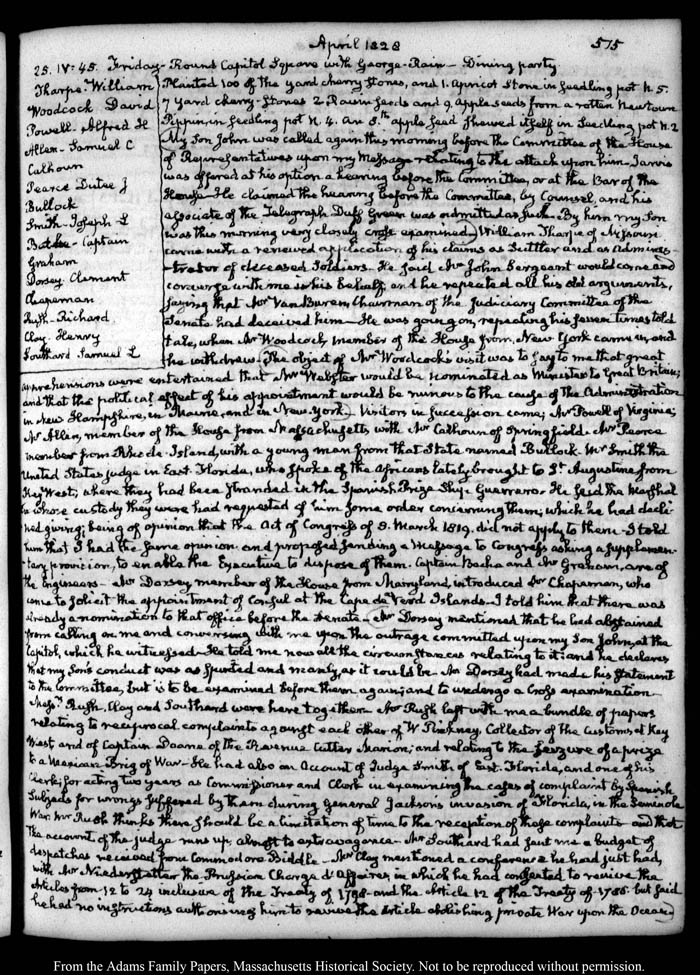 April 1828
575
25. IV:45. Friday. Round Capitol Square with George. Rain. Dining party
Tharpe. William
Woodcock David
Powell. Alfred H
Allen. Samuel C
Calhoun
Pearce Dutee J
Bullock
Smith. Joseph L
Bache. Captain
Graham
Dorsey. Clement
Chapman
Rush. Richard
Clay. Henry
Southard Samuel L
Planted 100 of the yard cherry stones, and 1. Apricot Stone in seedling pot N. 5.
7 yard cherry-stones 2 Raisin seeds and 9 apple seeds from a rotten Newtown
Pippin in seedling pot N. 4. An 8th. apple seed shewed itself in Seedling pot N. 2
My Son John was called again this morning before the Committee of the House
of Representatives upon my Message relating to the attack upon him. Jarvis
was offered at his option a hearing before the Committee, or at the Bar of the
House. He claimed the hearing before the Committee, by Counsel, and his
associate of the Telegraph Duff Green was admitted as such. By him my Son
was this morning very closely cross examined. William Tharpe of Missouri
came with a renewed application of his claims as Settler and as Adminis-
-trator of deceased Soldiers. He said Mr John Sergeant would come and
converse with me in his behalf, and he repeated all his old arguments,
saying that Mr Van Buren, Chairman of the Judiciary Committee of the
Senate had deceived him. He was going on, repeating his seven times told
tale, when Mr Woodcock member of the House from New York came in, and
he withdrew. The object of Mr Woodcock's visit was to say to me that great
apprehensions were entertained that Mr Webster would be nominated as Minister to Great Britain;
and that the political effect of his appointment would be ruinous to the cause of the Administration
in New Hampshire, in Maine, and in New York. Visitors in succession came; Mr Powell of Virginia;
Mr Allen, member of the House from Massachusetts, with Mr Calhoun of Springfield. Mr Pearce
member from Rhode-Island, with a young man from that State named Bullock. Mr Smith the
United States judge in East Florida, who spoke of the Africans lately brought to St Augustine from
Key West, where they had been stranded in the Spanish Prize Ship Guerrero. He said the Marshal
in whose custody they were had requested of him some order concerning them, which he had decli-
ned giving; being of opinion that the Act of Congress of 3. March 1819. did not apply to them. I told
him that I had the same opinion and proposed sending a Message to Congress asking a supplemen-
-tary provision, to enable the Executive to dispose of them. Captain Bache and Mr Graham, are of
the Engineers. Mr Dorsey member of the House from Maryland, introduced Mr Chapman, who
came to solicit the appointment of Consul at the Cape de Verd Islands. I told him that there was
already a nomination to that office before the Senate. Mr Dorsey mentioned that he had abstained
from calling on me and conversing with me upon the outrage committed upon my Son John, at the
Capitol, which he witnessed. He told me now all the circumstances relating to it; and he declares
that my Son's conduct was as spirited and manly, as it could be. Mr Dorsey had made his statement
to the Committee, but is to be examined before them again; and to undergo a Cross examination
Messrs Rush, Clay and Southard were here together. Mr Rush left with me a bundle of papers
relating to reciprocal complaints against each other of W Pinkney, Collector of the Customs at Key
West and of Captain Doane of the Revenue Cutter Marion; and relating to the seizure of a prize
to a Mexican Brig of War. He had also an Account of Judge Smith of East. Florida, and one of his
Clerk, for acting two years as Commissioner and Clerk in examining the cases of complaint by Spanish
Subjects for wrongs suffered by them during General Jackson's invasion of Florida, in the Seminole
War. Mr Rush thinks there should be a limitation of time to the reception of those complaints and that
the account of the judge runs up almost to extravagance. Mr Southard had sent me a budget of
despatches received from Commodore Biddle. Mr Clay mentioned a conference he had just had,
with Mr Niederstetter the Prussian Chargé d'Affaires, in which he had consented to revive the
Articles from 12 to 24 inclusive of the Treaty of 1799 and the Article 12 of the Treaty of 1785. but said
he had no instructions authorising him to revive the Article abolishing private War upon the Ocean
From the Adams Family Papers, Massachusetts Historical Society. Not to be reproduced without permission.